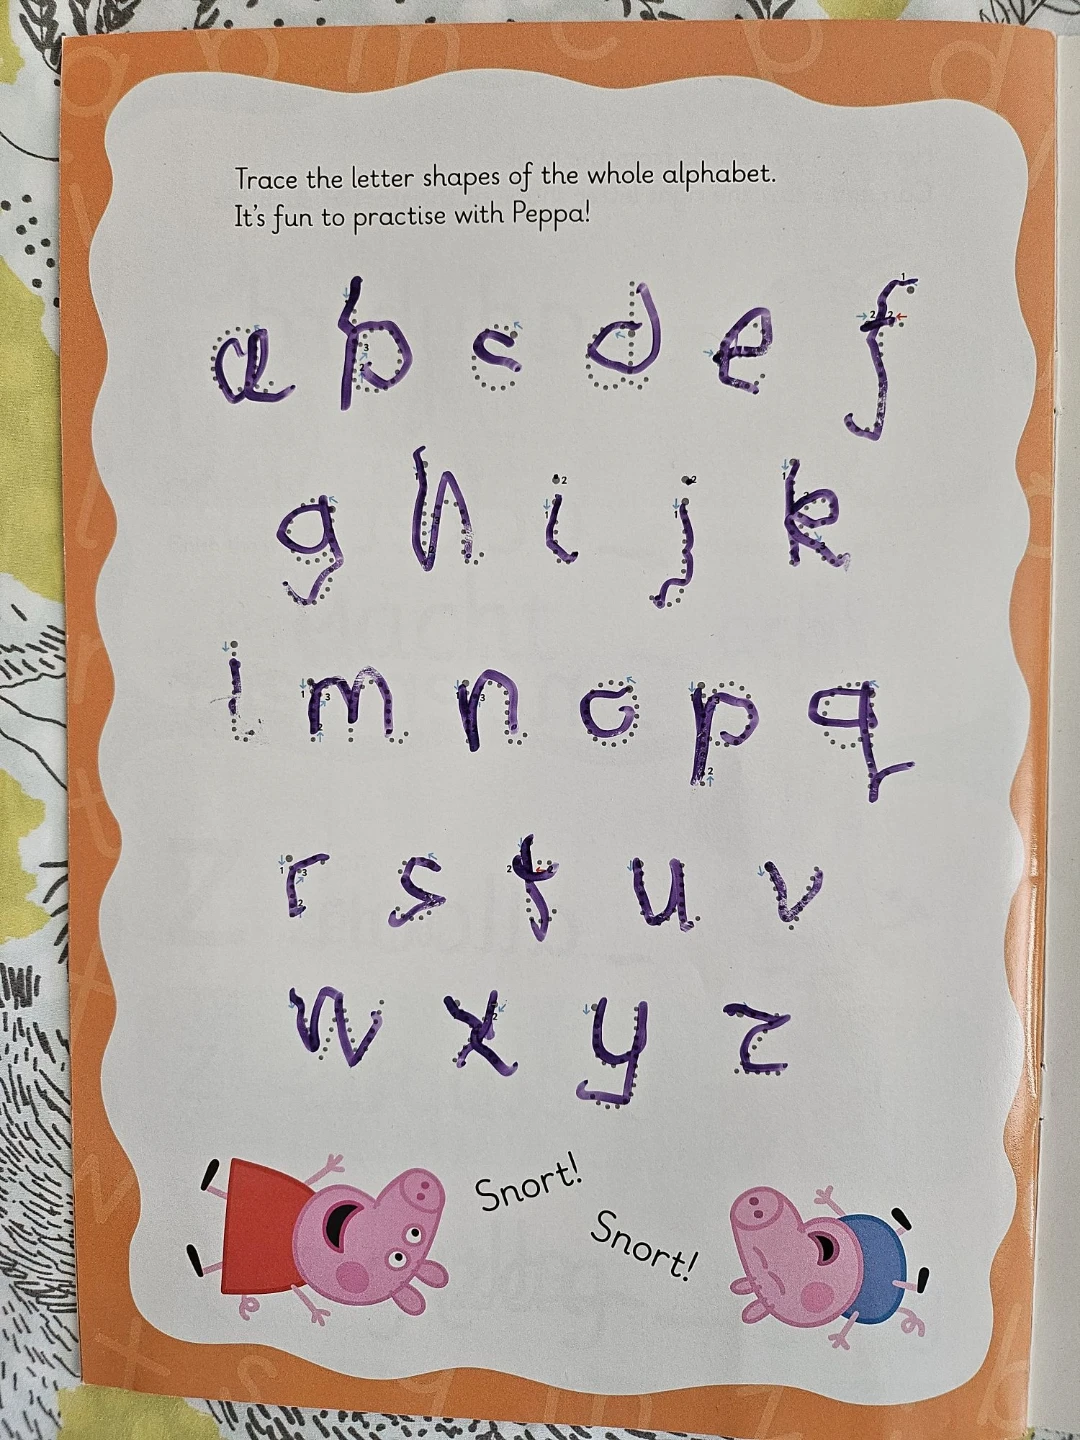 Trace the letter shapes of the whole alphabet.
It's fun to practise with Peppa!
a b c d e f
g h i j k
l m n o p q
r s t u v
w x y z
Snort!
Snort!